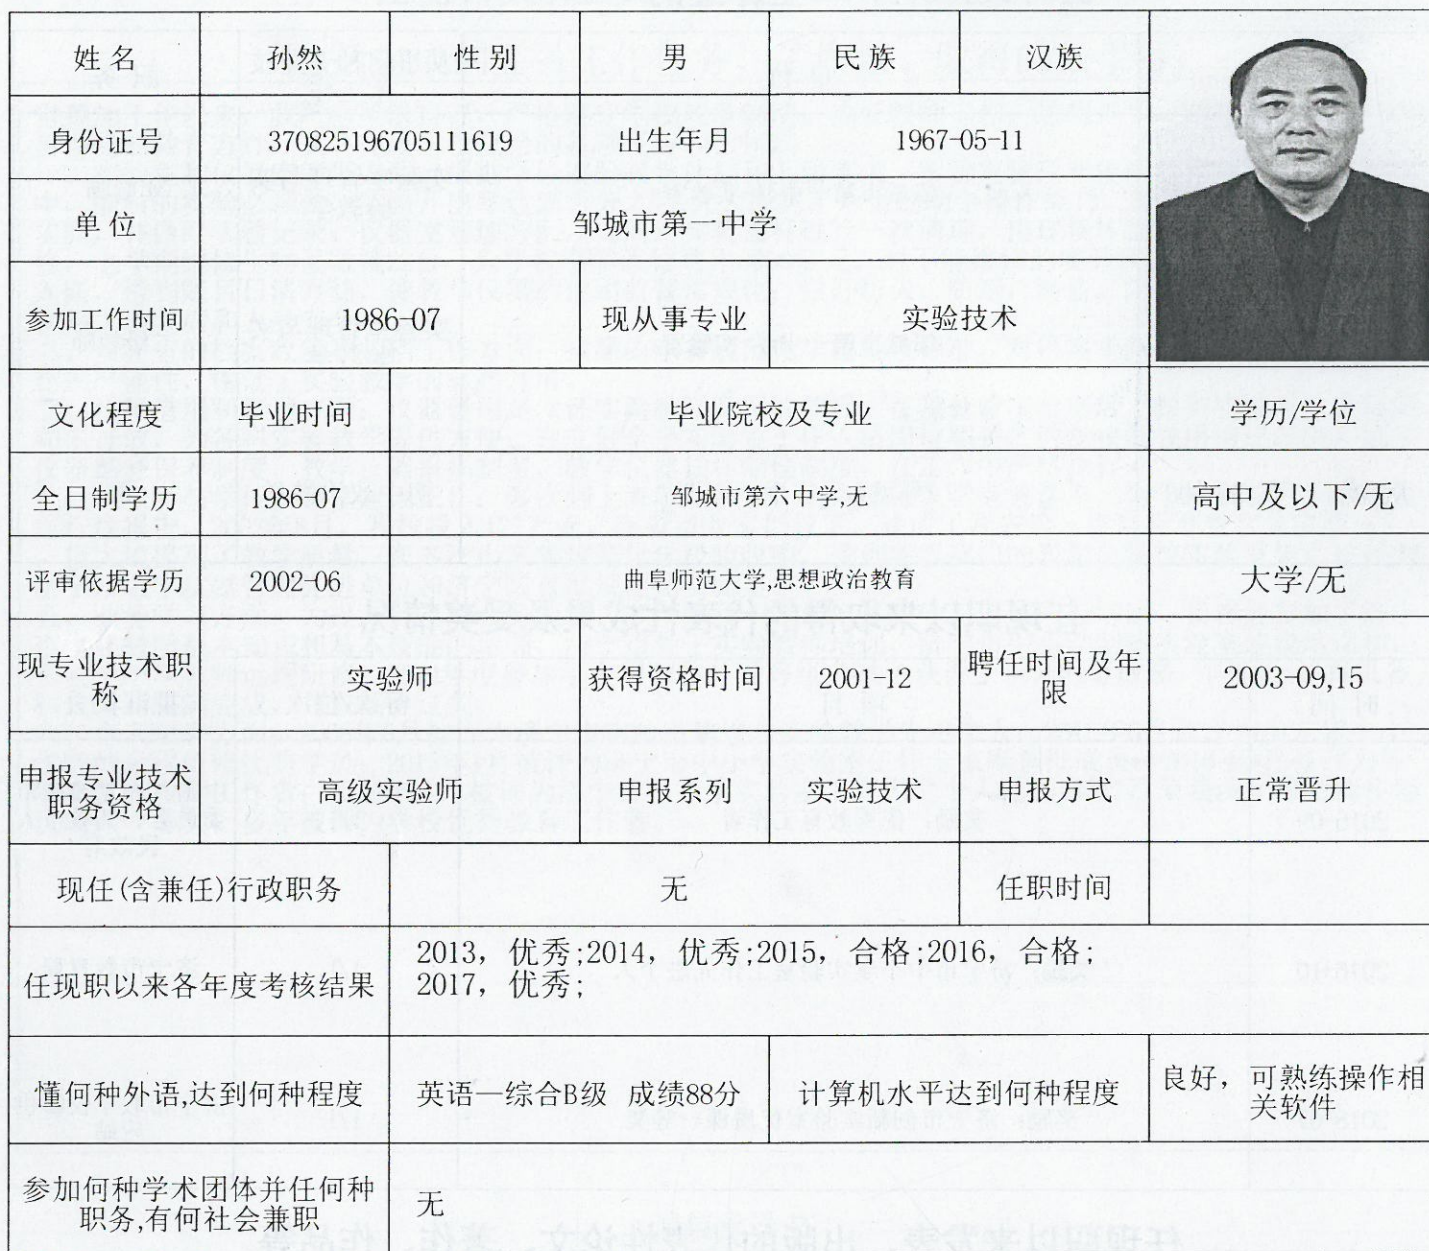 姓名 孙然 性别 男 民族 汉族
身份证号 370825196705111619 出生年月 1967-05-11
单位 邹城市第一中学
参加工作时间 1986-07 现从事专业 实验技术
文化程度 毕业时间 毕业院校及专业 学历/学位
全日制学历 1986-07 邹城市第六中学,无 高中及以下/无
评审依据学历 2002-06 曲阜师范大学,思想政治教育 大学/无
现专业技术职
称 实验师 获得资格时间 2001-12 聘任时间及年
限 2003-09,15
申报专业技术
职务资格 高级实验师 申报系列 实验技术 申报方式 正常晋升
现任(含兼任)行政职务 无 任职时间
任现职以来各年度考核结果
2013，优秀;2014，优秀;2015，合格;2016，合格;
2017，优秀;
懂何种外语,达到何种程度 英语—综合B级 成绩88分 计算机水平达到何种程度 良好，可熟练操作相
关软件
参加何种学术团体并任何种
职务,有何社会兼职 无